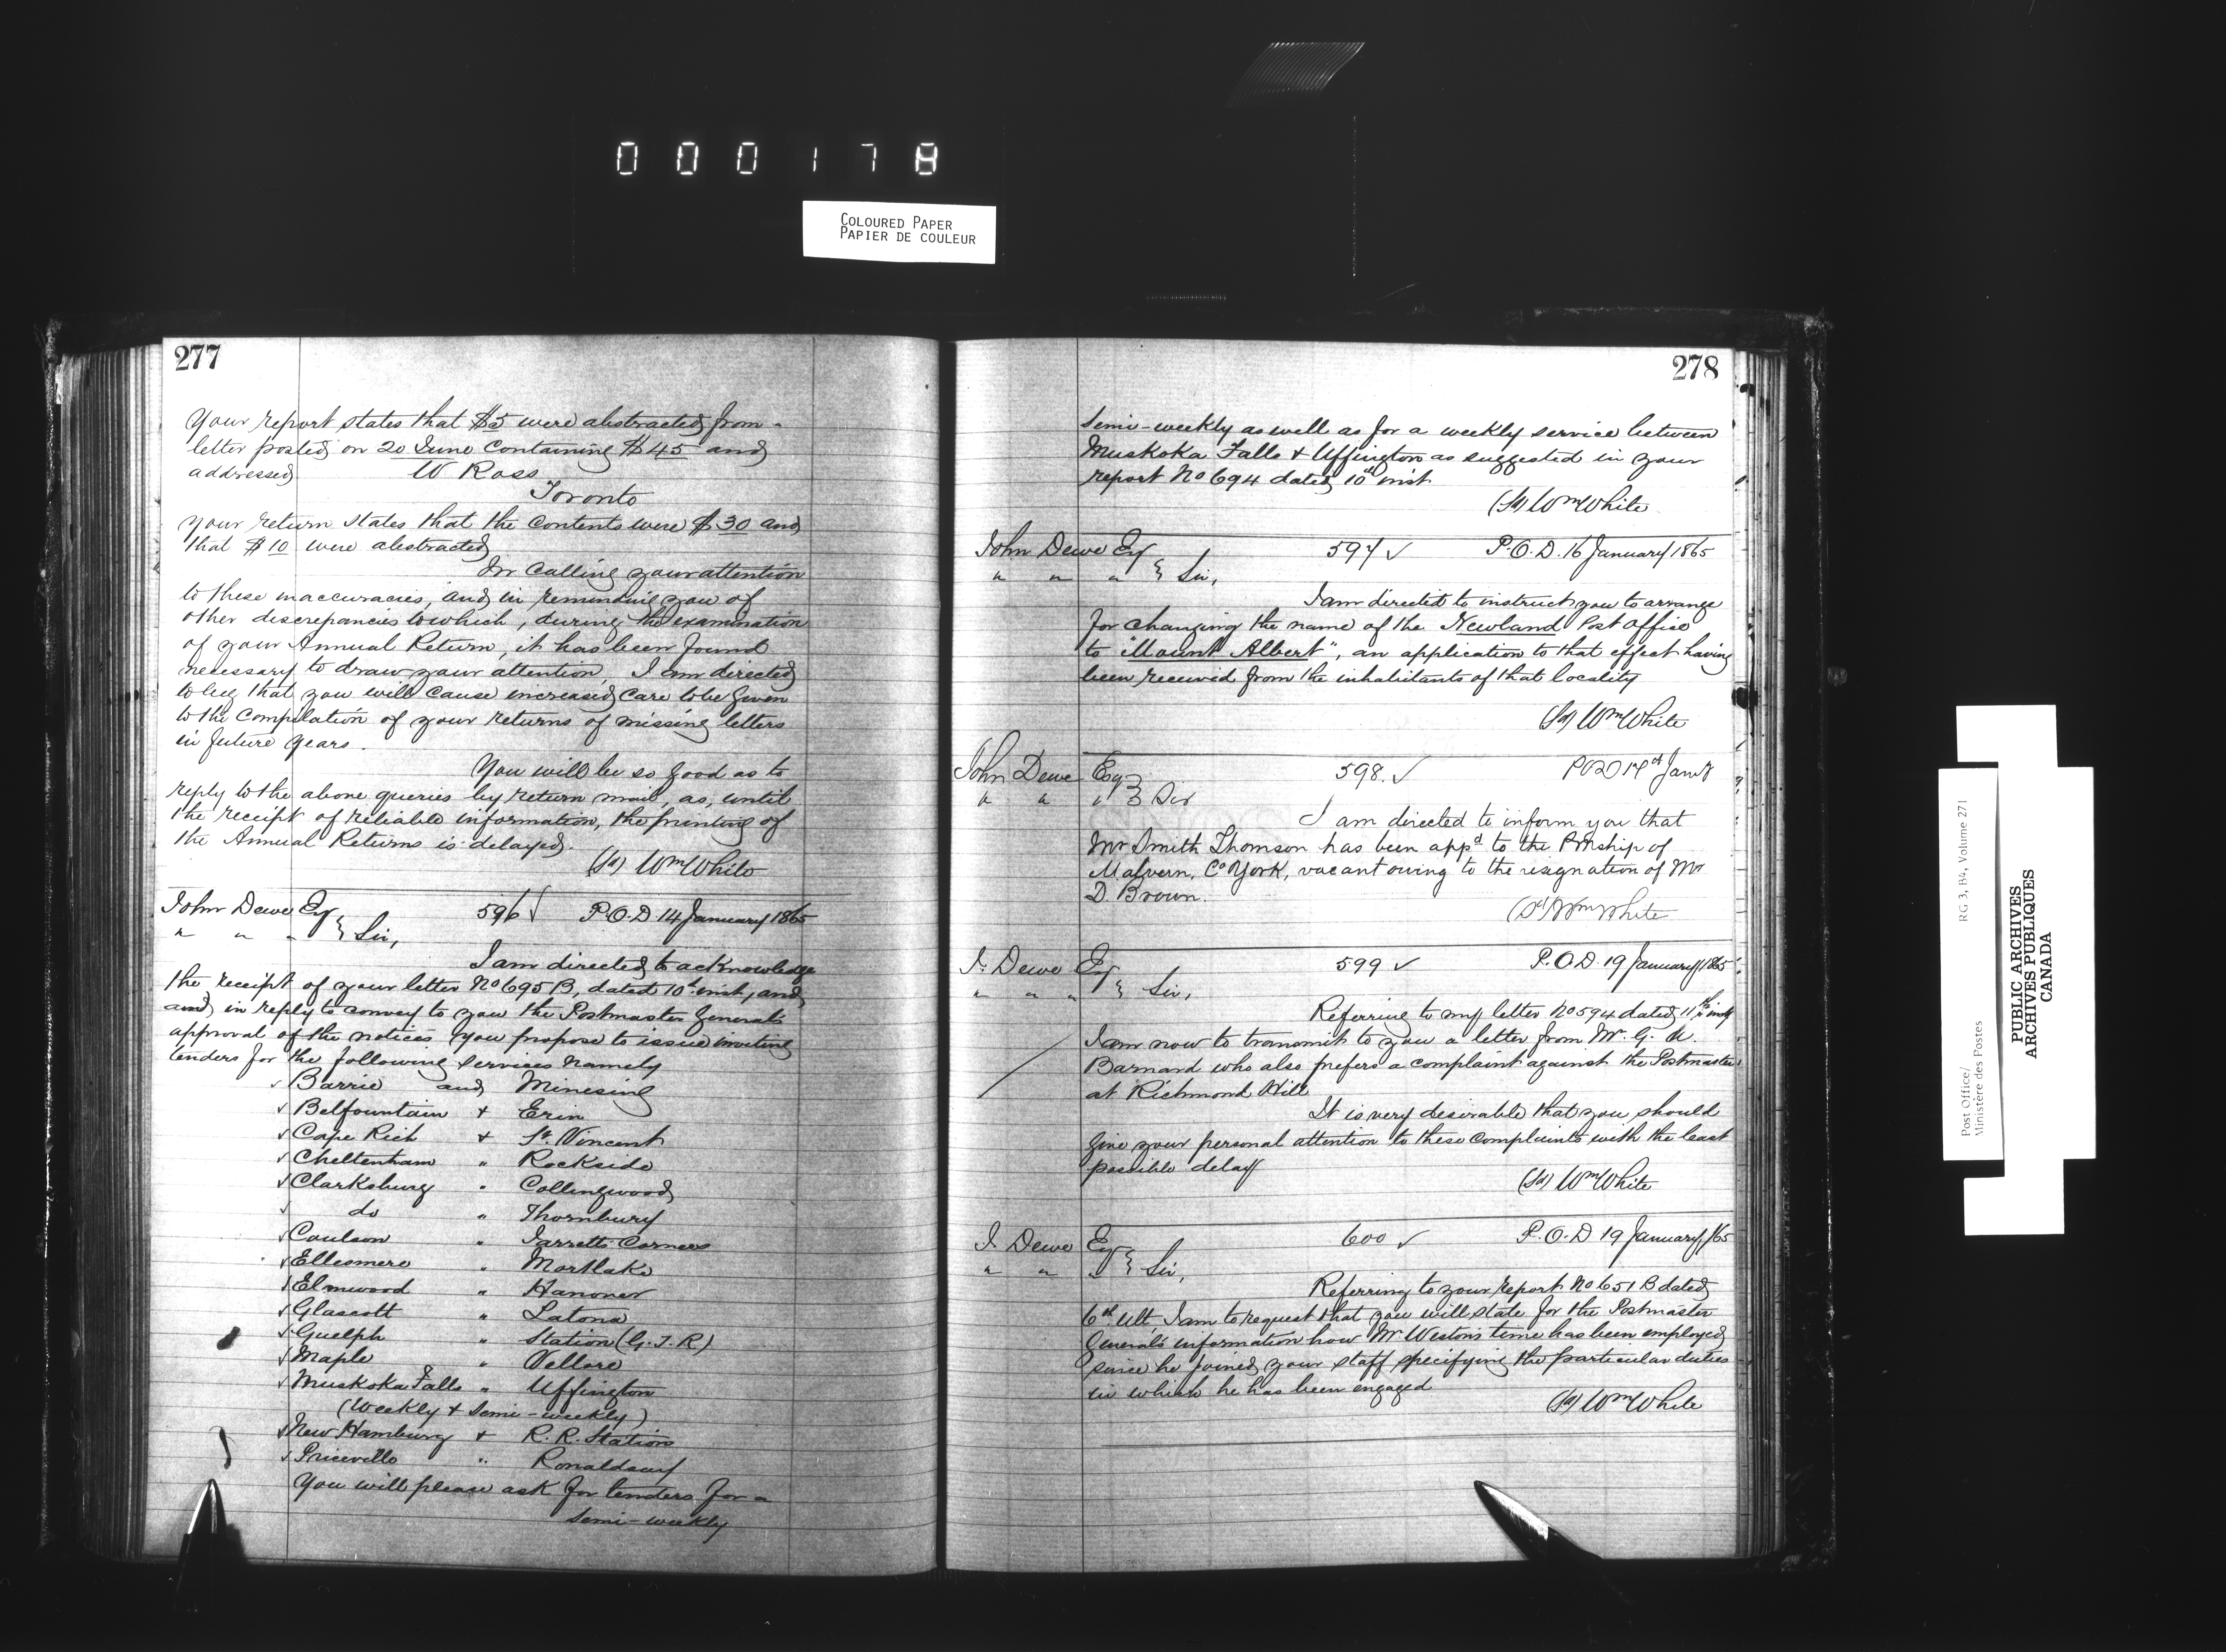 000178
COLOURED PAPER
PAPIER DE COULEUR
277
Your report states that $5 were abstracted from
letter posted on 20 June containing $45 and
addressed W Ross
Toronto
your return states that the contents were $30 and
that $10 were abstracted
In calling your attention
to these inaccuracies, and in reminding you of
other discrepancies to which, during the examination
of your Annual Return, it has been found
necessary to draw your attention, I am directed
to beg that you will cause increased care to be given
to the compilation of your returns of missing letters
in future years.
You will be so good as to
reply to the above queries by return mail, as, until
the receipt of reliable information, the printing of
the Annual Returns is delayed.
(Sd) Wm White
John Dewe Esq 596 ✓ P.O.D. 14 January 1865
" " " } Sir,
I am directed to acknowledge
the receipt of your letter No 695 B, dated 10th inst, and
and in reply to convey to you the Postmaster General's
approval of the notices you propose to issue inviting
tenders for the following services namely
✓ Barrie and Minesing
✓ Belfountain + Erin
✓ Cape Rich + St. Vincent
✓ Cheltenham " Rockside
✓ Clarksburg " Collingwood
✓ do " Thornbury
✓ Coulson " Jarretts Corners
✓ Ellesmere " Mortlake
✓ Elmwood " Hanover
✓ Glascott " Latona
✓ Guelph " Station (G.T.R)
✓ Maple " Vellore
✓ Muskoka Falls " Uffington
(Weekly + Semi-weekly)
✓ New Hamburg + R.R. Station
✓ Priceville " Ronaldsay
You will please ask for tenders for a
semi-weekly
278
semi-weekly as well as for a weekly service between
Muskoka Falls + Uffington as suggested in your
report No 694 dated 10th inst
(Sd) Wm White
John Dewe Esq 597 ✓ P.O.D. 16 January 1865
" " " } Sir,
I am directed to instruct you to arrange
for changing the name of the Newland Post Office
to "Mount Albert", an application to that effect having
been received from the inhabitants of that locality
(Sd) Wm White
John Dewe Esq 598. ✓ POD 17th Jany
" " " } Sir
I am directed to inform you that
Mr Smith Thomson has been appd to the Pmship of
Malvern, Co York, vacant owing to the resignation of Mr
D. Brown.
(Sd) Wm White
J. Dewe Esq 599 ✓ P.O.D. 19 January 1865
" " " } Sir,
Referring to my letter No 594 dated 11th inst
I am now to transmit to you a letter from Mr. G. A.
Barnard who also prefers a complaint against the Postmaster
at Richmond Hill
It is very desirable that you should
give your personal attention to these complaints with the least
possible delay
(Sd) Wm White
J. Dewe Esq 600 ✓ P.O.D 19 January /65
" " " } Sir,
Referring to your report No 651 B dated
6th Ult I am to request that you will state for the Postmaster
General's information how Mr Weston's time has been employed
since he joined your staff specifying the particular duties
in which he has been engaged
(Sd) Wm White
Post Office/ RG 3, B4, Volume 271
Ministère des Postes
PUBLIC ARCHIVES
ARCHIVES PUBLIQUES
CANADA